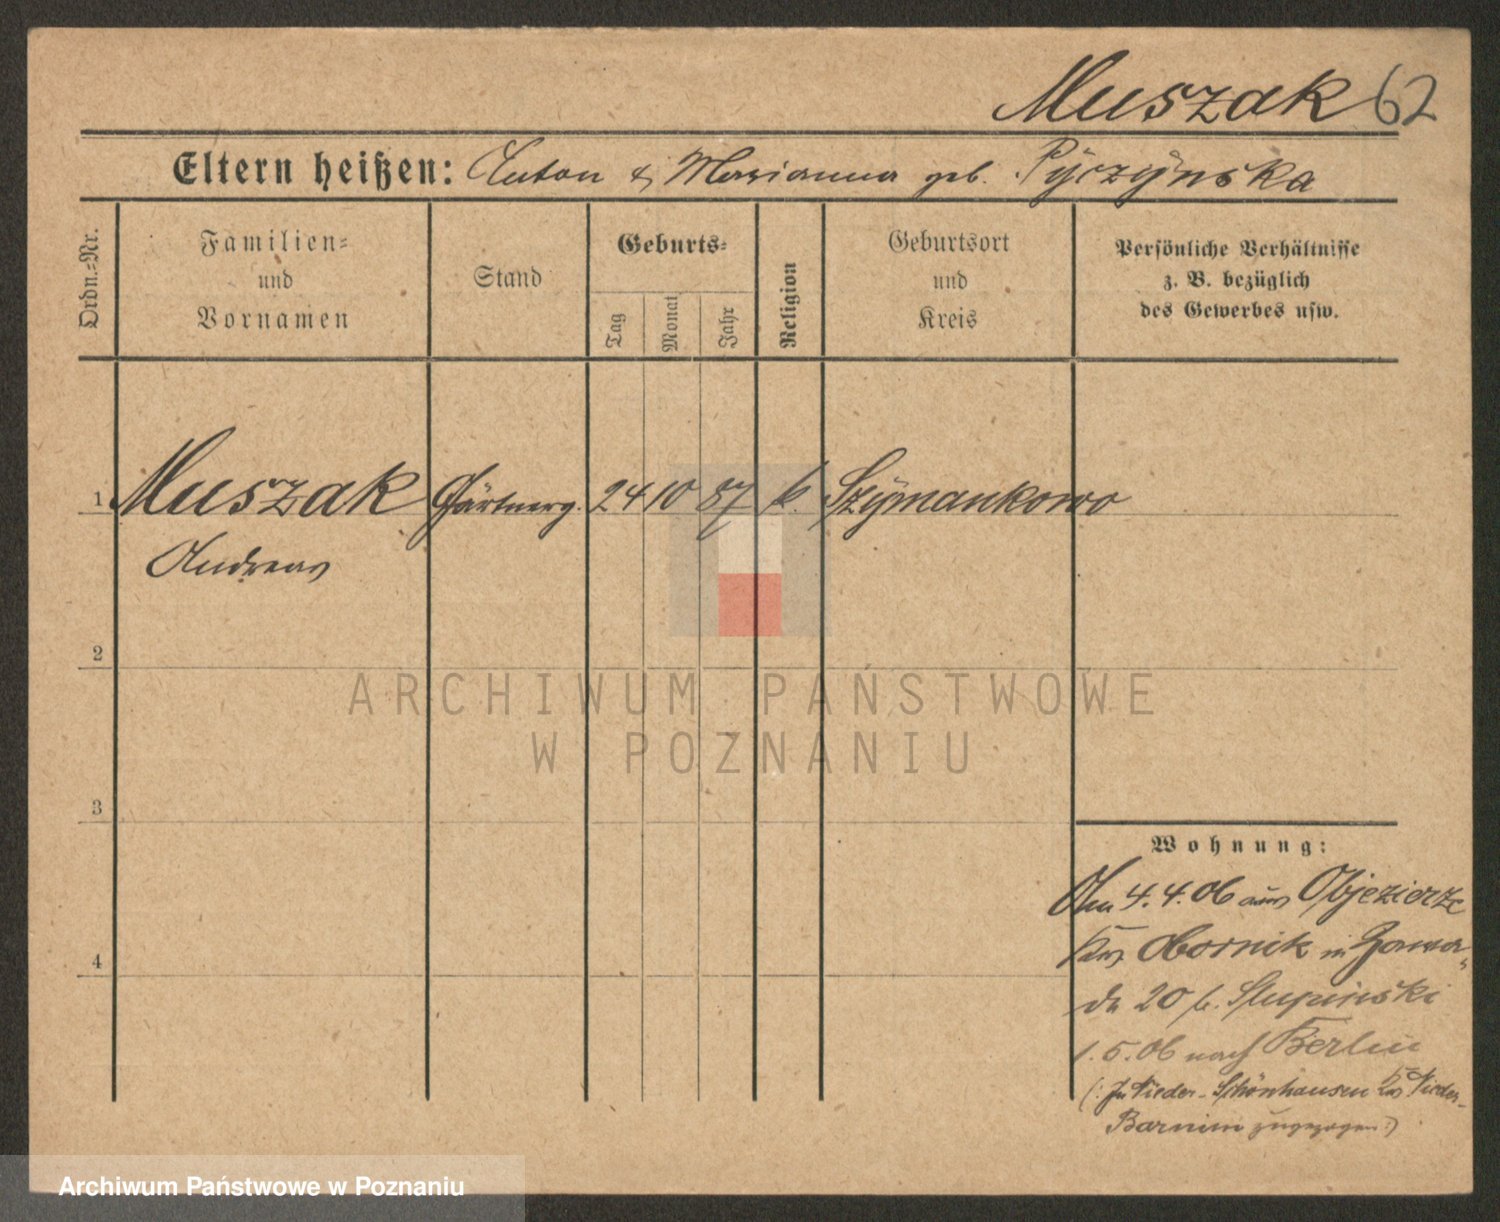 Muszak 62
Eltern heißen: Anton & Marianna geb. Pyczynska
Ordn.=Nr.
Familien=
und
Vornamen
Stand
Geburts=
Tag
Monat
Jahr
Religion
Geburtsort
und
Kreis
Persönliche Verhältnisse
z. B. bezüglich
des Gewerbes usw.
1 Muszak Gärtnerg. 24 10 87 k. Szymankowo
Andreas
2
3
4
Wohnung:
Am 4.4.06 aus Objezierze
Krs Obornik in Zawa-
de 20 b. Slupinski
1.5.06 nach Berlin
(: In Nieder-Schönhausen Krs Nieder-
Barnim zugezogen :)
ARCHIWUM PAŃSTWOWE
W POZNANIU
Archiwum Państwowe w Poznaniu